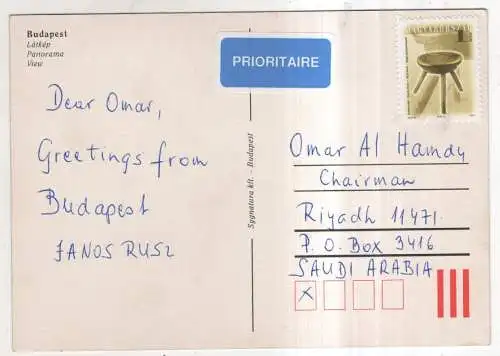 Budapest
Látkép
Panorama
View
PRIORITAIRE
MAGYARORSZÁG
Dear Omar,
Greetings from
Budapest
JANOS RUSZ
Sygnatura kft. - Budapest
Omar Al Hamdy
Chairman
Riyadh 11471.
P. O. Box 3416
SAUDI ARABIA
X